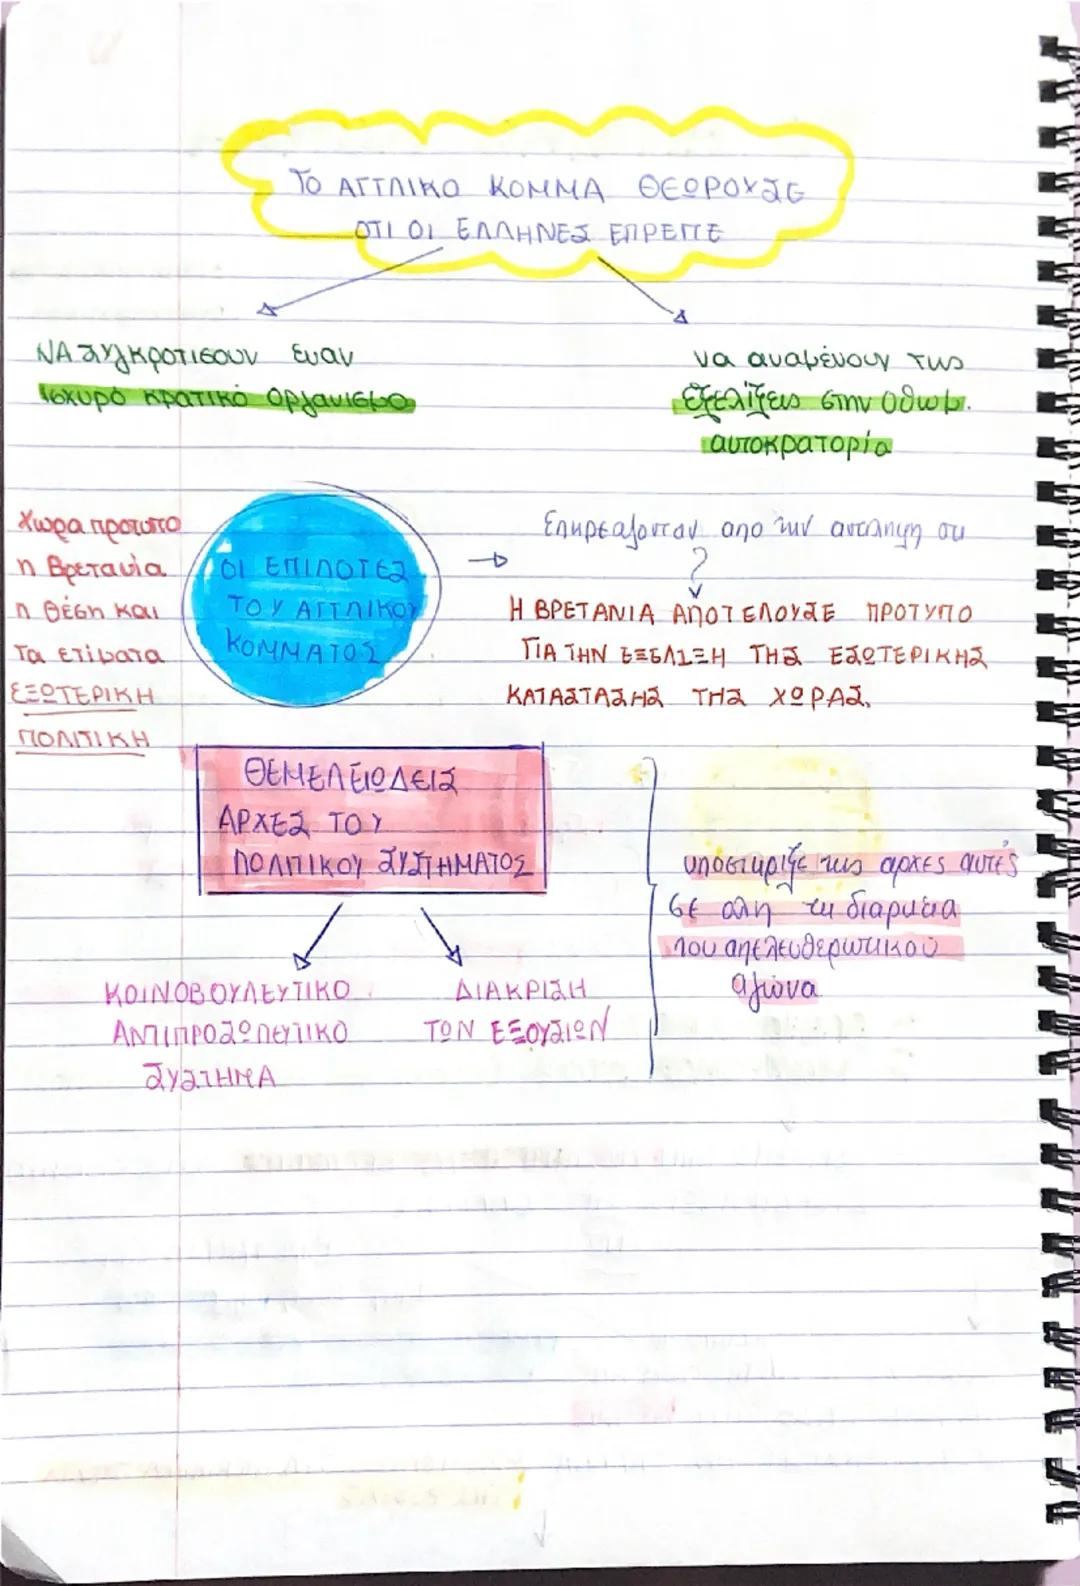 ΤΟ ΑΓΓΛΙΚΟ ΚΟΜΜΑ ΘΕΩΡΟΥΣΕ
ΟΤΙ ΟΙ ΕΛΛΗΝΕΣ ΕΠΡΕΠΕ
ΝΑ συγκροτισουν εναν
ισχυρό κρατικό οργανισμο
να αναμένουν τις
εξελίξεις στην οθωμ.
αυτοκρατορία
Χωρα προτυπο
η Βρετανία
η θέση και
τα ετιματα
ΕΞΩΤΕΡΙΚΗ
ΠΟΛΙΤΙΚΗ
ΟΙ ΕΠΙΛΟΓΕΣ
ΤΟΥ ΑΓΓΛΙΚΟΥ
ΚΟΜΜΑΤΟΣ
Επηρεαζονταν απο την αντιληψη οτι
Η ΒΡΕΤΑΝΙΑ ΑΠΟΤΕΛΟΥΣΕ ΠΡΟΤΥΠΟ
ΓΙΑ ΤΗΝ ΕΞΕΛΙΞΗ ΤΗΣ ΕΣΩΤΕΡΙΚΗΣ
ΚΑΤΑΣΤΑΣΗΣ ΤΗΣ ΧΩΡΑΣ.
ΘΕΜΕΛΕΙΩΔΕΙΣ
ΑΡΧΕΣ ΤΟΥ
ΠΟΛΙΤΙΚΟΥ ΣΥΣΤΗΜΑΤΟΣ
ΚΟΙΝΟΒΟΥΛΕΥΤΙΚΟ
ΑΝΤΙΠΡΟΣΩΠΕΥΤΙΚΟ
ΣΥΣΤΗΜΑ
ΔΙΑΚΡΙΣΗ
ΤΩΝ ΕΞΟΥΣΙΩΝ
υποστιριξε τις αρχες αυτές
σε ολη τη διαρκεια
του απελευθερωτικού
αγώνα